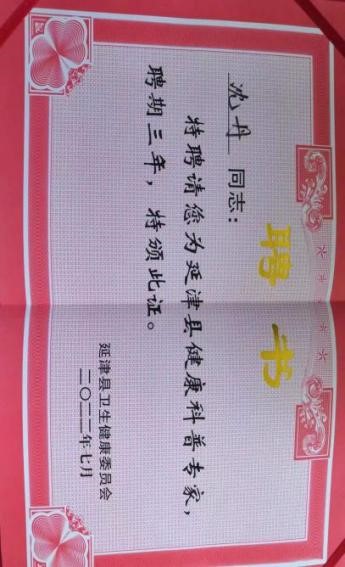 聘书
沈丹 同志：
特聘请您为延津县健康科普专家，
聘期三年，特颁此证。
延津县卫生健康委员会
二〇二二年七月